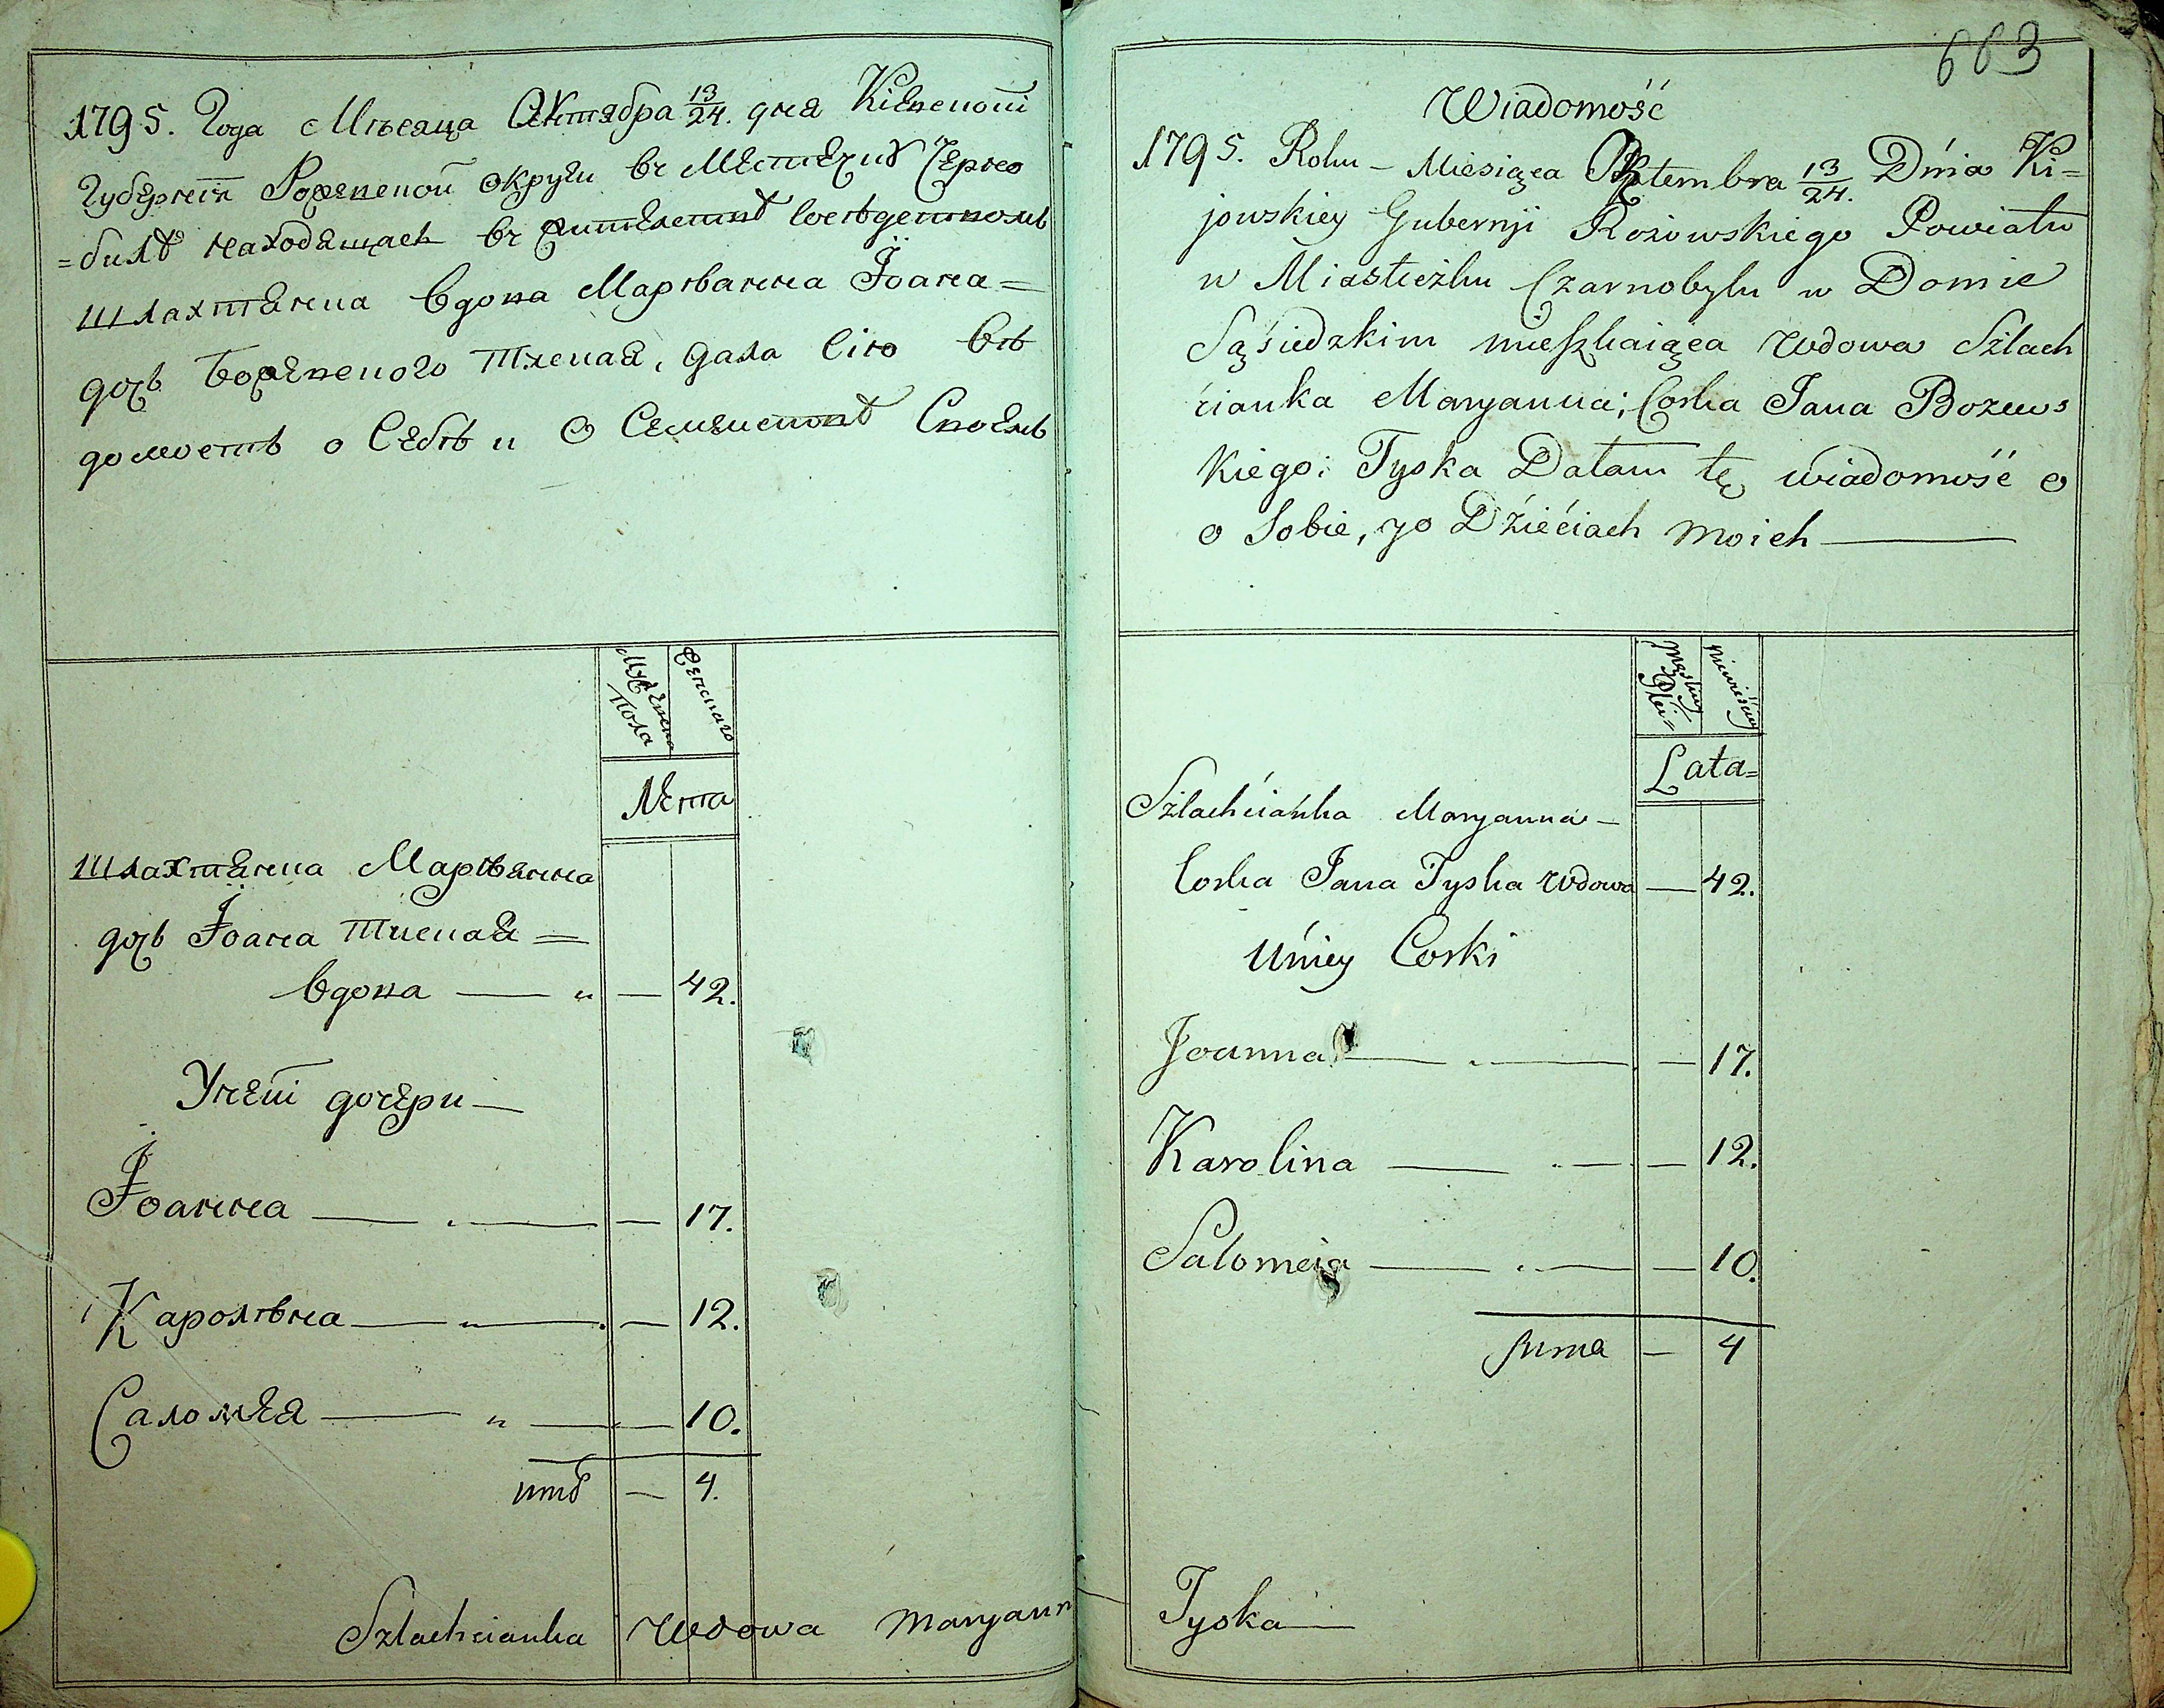 1795. Года Мѣсяца Октября 13/24. дня Кіевской
Губерніи Рожевской округи въ Местечку Черно
=билѣ находящаясь въ жителствѣ Сосѣдетвомъ
шляхтянка вдова Марѣанна Іоана=
дочь Божевского Тиская, дала Сію Вѣ
домость о Себѣ и О Семействѣ Своемъ
Мужеска Пола
Женскаго
Лета
Шляхтянка Марѣянна
дочь Іоана Тиская =
вдова — „ — 42.
У ней дочери —
Іоанна — . — — 17.
Каролѣна — „ — . — 12.
Саломея — „ — — 10.
итѡ — 4.
Szlachcianka Wdowa Maryann
663
Wiadomość
1795. Roku – Miesiąca Oktembra 13/24. Dnia Ki=
jowskiey Gubernji Rożowskiego Powiatu
w Miasteczku Czarnobylu w Domie
Sąsiedzkim mieszkaiąca Wdowa Szlach
cianka Maryanna; Corka Jana Bozews
kiego; Tyska Dałam tę wiadomość o
o Sobie, y o Dzieciach moich —
Męskiey Płci=
niewieściey
Lata=
Szlachcianka Maryanna –
Corka Jana Tyska Wdowa — 42.
U niey Corki
Joanna — . — — 17.
Karolina — . — — 12.
Salomeia — . — — 10.
suma — 4
Tyska —